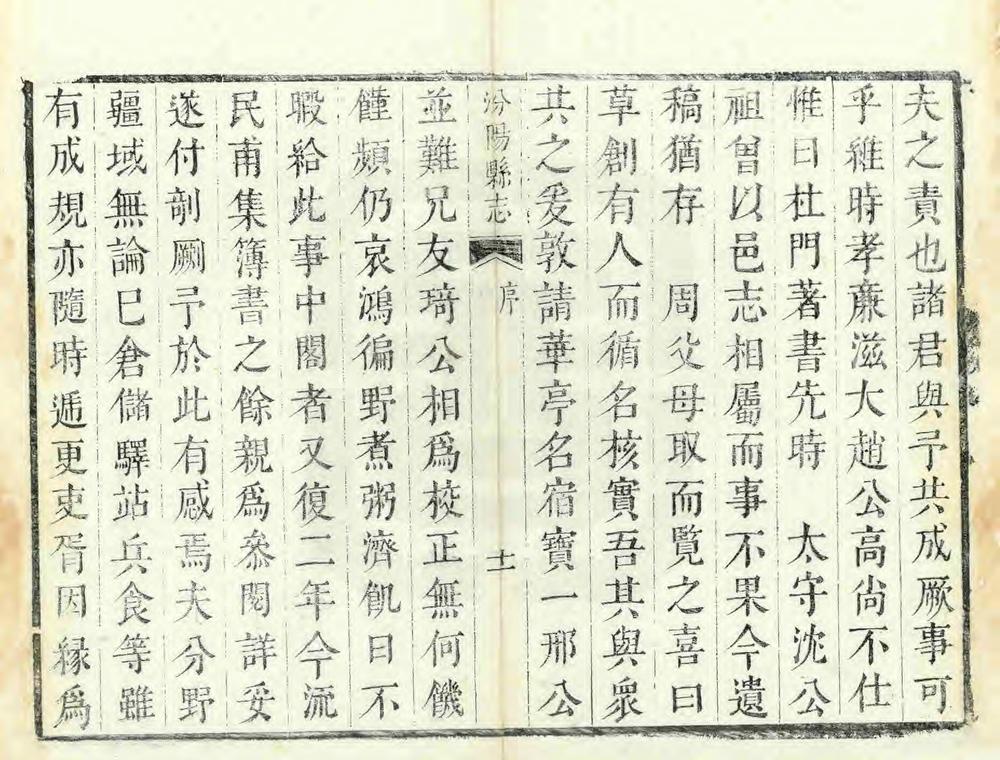 夫之責也諸君與予共成厥事可
乎維時孝廉滋大趙公高尙不仕
惟日杜門著書先時　太守沈公
祖曾以邑志相屬而事不果今遺
稿猶存　周父母取而覽之喜曰
草創有人而循名核實吾其與衆
其之爰敦請華亭名宿寶一邢公
汾陽縣志　序　十一
並難兄友琦公相爲校正無何饑
饉頻仍哀鴻徧野煮粥濟飢日不
暇給此事中閣者又復二年今流
民甫集簿書之餘親爲叅閱詳妥
遂付剞劂予於此有感焉夫分野
疆域無論已倉儲驛站兵食等雖
有成規亦隨時遞更吏胥因緣爲